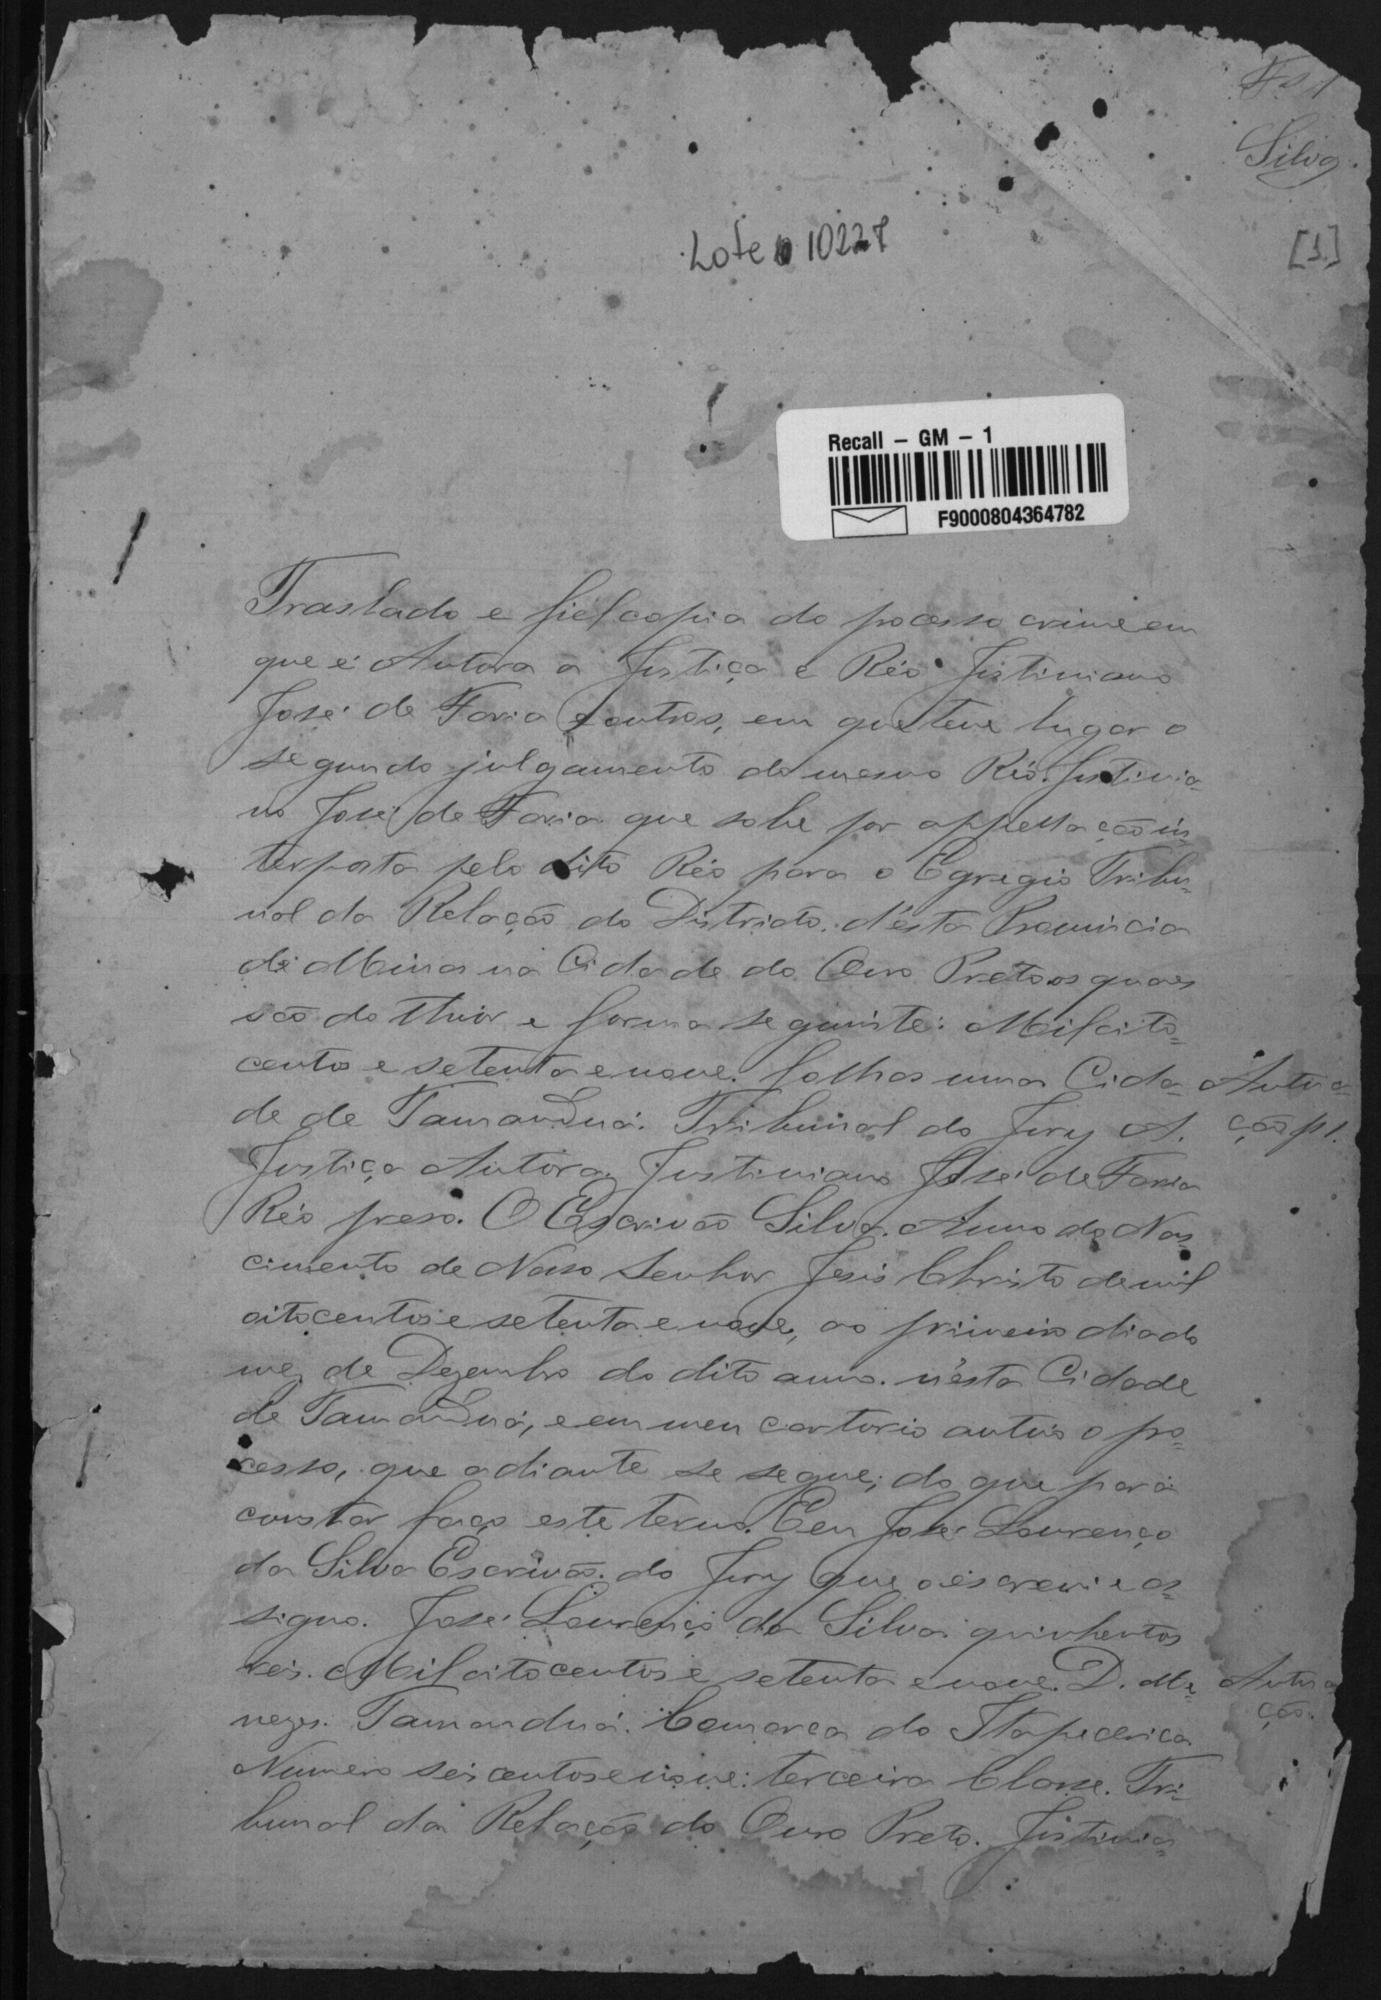 Fs 1
Silva.
Lote 10227
[1]
Recall – GM – 1
F9000804364782
Traslado e fiel copia do processo crime em
que é Autora a Justiça e Réo Justiniano
José de Faria e outros, em que teve lugar o
segundo julgamento do mesmo Réo Justinia=
no José de Faria que sobe por appellação in=
terposta pelo dito Réo para o Egregio Tribu=
nal da Relação do Districto d'ésta Provincia
de Minas na Cidade do Ouro Preto os quaes
são do theor e forma seguinte: Mil oito=
centos e setenta e nove. folhas uma Cida=
Autua=
de de Tamanduá. Tribunal do Jury A.
ção f 1.
Justiça Autora. Justiniano José de Faria
Réo preso. O Escrivão Silva. Anno do Nas=
cimento de Nosso Senhor Jesús Christo de mil
oitocentos e setenta e nove, ao primeiro dia do
mez de Dezembro do dito anno. n'ésta Cidade
de Tamanduá, e em meu cartorio autúo o pro=
cesso, que adiante se segue; do que para
constar faço este termo. Eeu José Lourenço
da Silva Escrivão do Jury que o éscrevi e as=
signo. José Lourenço da Silva. quinhentos
reis. Mil oitocentos e setenta e nove. D. Me=
Autua
nezes. Tamanduá. Comarca do Itapecerica
ção.
Numero seis centos e nove: terceira Classe. Tri=
bunal da Relação do Ouro Preto. Justinia=